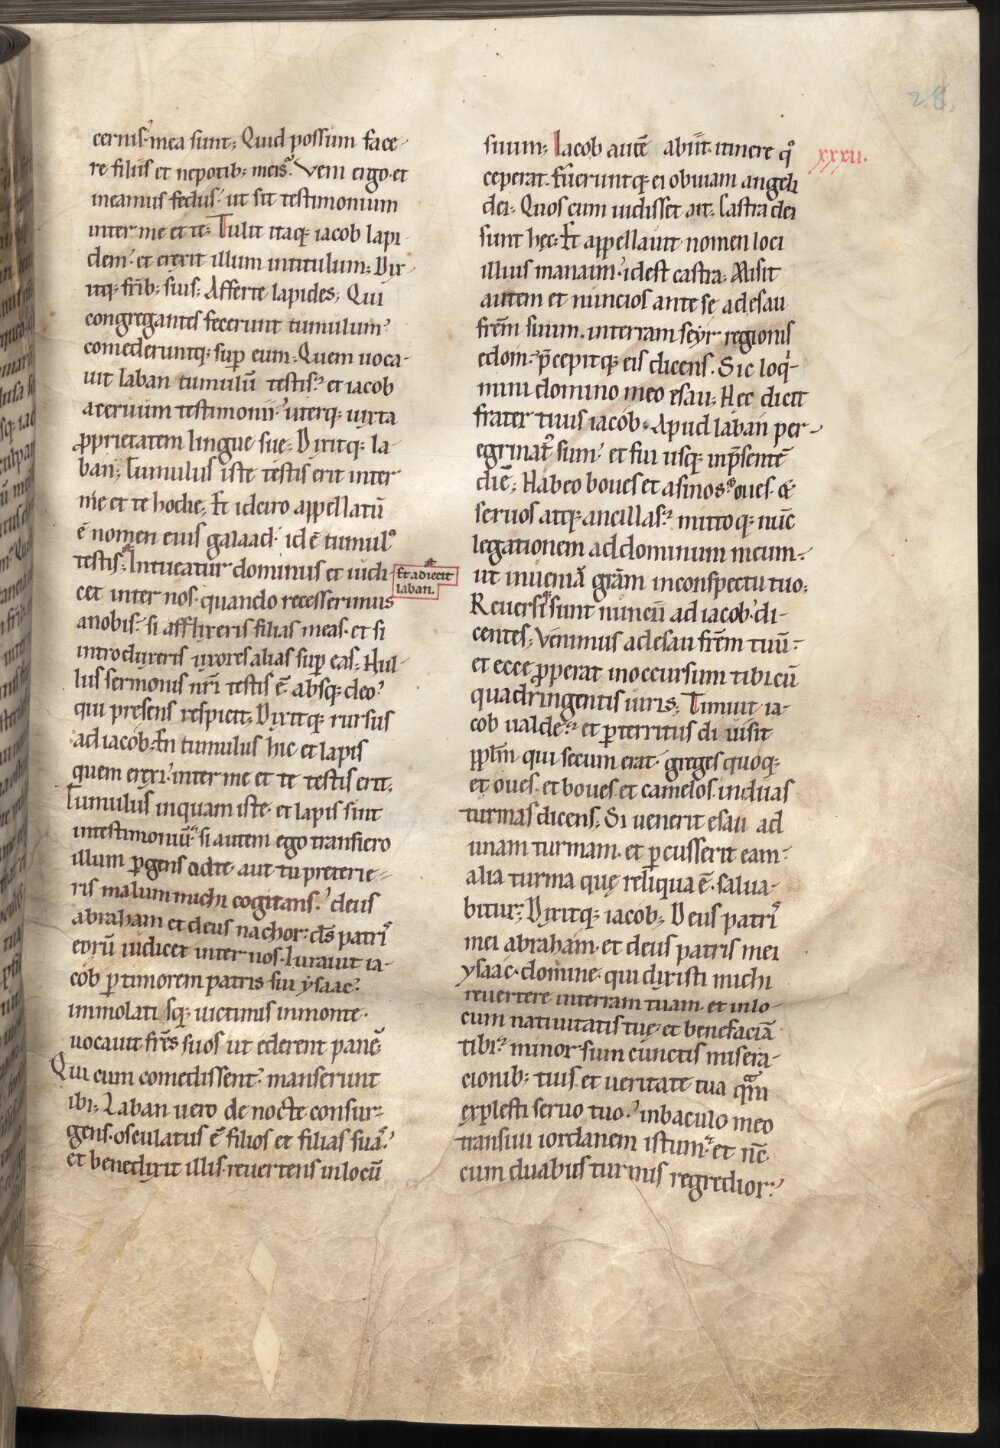 28.
cernis mea sunt; Quid possum face-
re filiis et nepotib; meis? Veni ergo et
ineamus fedus. ut sit testimonium
inter me et te. Tulit itaq; iacob lapi-
dem. et erexit illum intitulum; Dix-
itq; frib; suis; Afferte lapides; Qui
congregantes fecerunt tumulum.
comederuntq; sup eum. Quem uoca-
uit laban tumulū testis. et iacob
aceruum testimonii. uterq; iuxta
pprietatem lingue sue; Dixitq; la-
ban; Tumulus iste testis erit inter
me et te hodie; Et idcirco appellatū
ē nomen eius galaad. id ē tumulꝰ
testis; Intueatur dominus et iudi-
Et adiecit
laban.
cet inter nos. quando recesserimus
anobis. si afflixeris filias meas. et si
introduxeris uxores alias sup eas; Nul-
lus sermonis nri testis ē. absq; deo.
qui presens respicit; Dixitq; rursus
ad iacob; En tumulus hic et lapis
quem erexi. inter me et te testis erit;
Tumulus inquam iste. et lapis sint
intestimoniū. si autem ego transiero
illum pgens ad te. aut tu preterie-
ris malum michi cogitans. deus
abraham et deus nachor. ds patrꝭ
eorū iudicet inter nos. Iurauit ia-
cob p timorem patris sui ysaac.
immolatisq; uictimis inmonte.
uocauit frēs suos ut ederent panē.
Qui cum comedissent. manserunt
ibi; Laban uero de nocte consur-
gens. osculatus ē filios et filias suas.
et benedixit illis. reuertens inlocū
suum; Iacob autē abiit. itinere qͦ
xxxii.
ceperat. fueruntq; ei obuiam angeli
dei. Quos cum uidisset ait. Castra dei
sunt hęc. Et appellauit nomen loci
illius manaim. idest castra; Misit
autem et nuncios ante se ad esau
frēm suum. interram seyr regionis
edom. p̄cepitq; eis dicens. Sic loqͥ-
mini domino meo esau; Hec dicit
frater tuus iacob. Apud laban per-
egrinatꝰ sum. et fui usq; inp̄sentē
diē; Habeo boues et asinos. oues. &
seruos atq; ancillas. mittoq; nūc
legationem ad dominum meum.
ut inueniā grām inconspectu tuo.
Reuersi sunt nuncii ad iacob. di-
centes; Venimus ad esau frēm tuū.
et ecce pperat inoccursum tibi cū
quadringentis uiris; Timuit ia-
cob ualde. et pterritus diuisit
pplm qui secum erat. greges quoq;
et oues. et boues et camelos. induas
turmas dicens; Si uenerit esau ad
unam turmam. et pcusserit eam.
alia turma quę reliqua ē. salua-
bitur; Dixitq; iacob; Deus patrꝭ
mei abraham. et deus patris mei
ysaac. domine. qui dixisti michi
reuertere interram tuam. et inlo-
cum natiuitatis tuę. et benefaciā
tibi. minor sum cunctis misera-
cionib; tuis. et ueritate tua quā
explesti seruo tuo. inbaculo meo
transiui iordanem istum. et nc̄
cum duabus turmis regredior.